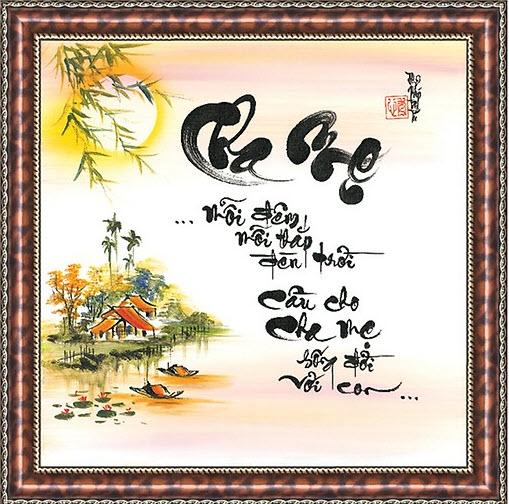 Cha Mẹ
... mỗi đêm
mỗi thắp
đèn trời
Cầu cho
Cha mẹ
sống đời
với con ...